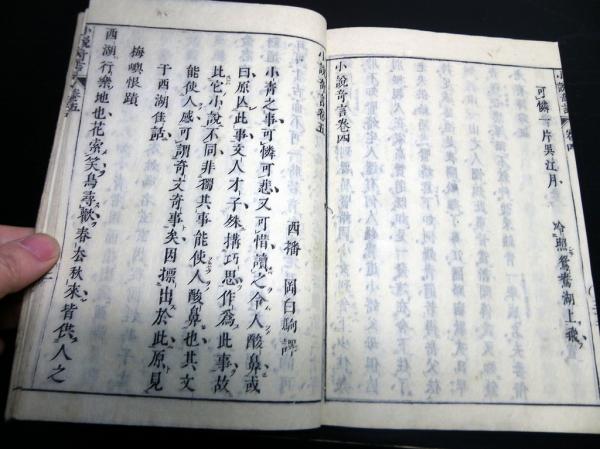 可憐一片吳江月
冷照鴛鴦湖上飛
小說奇言卷四
小說奇言卷五
西播 岡白駒譯
小青之事可憐可悲又可惜讀之令人酸鼻或
曰原因此事文人才子殊搆巧思作爲此事故
此它小說不同非獨其事能使人酸鼻也其文
能使人感可謂奇文奇事矣因摽出於此原見
于西湖佳話
梅嶼恨蹟
西湖行樂地也花索笑鳥尋歡春去秋來皆供人之